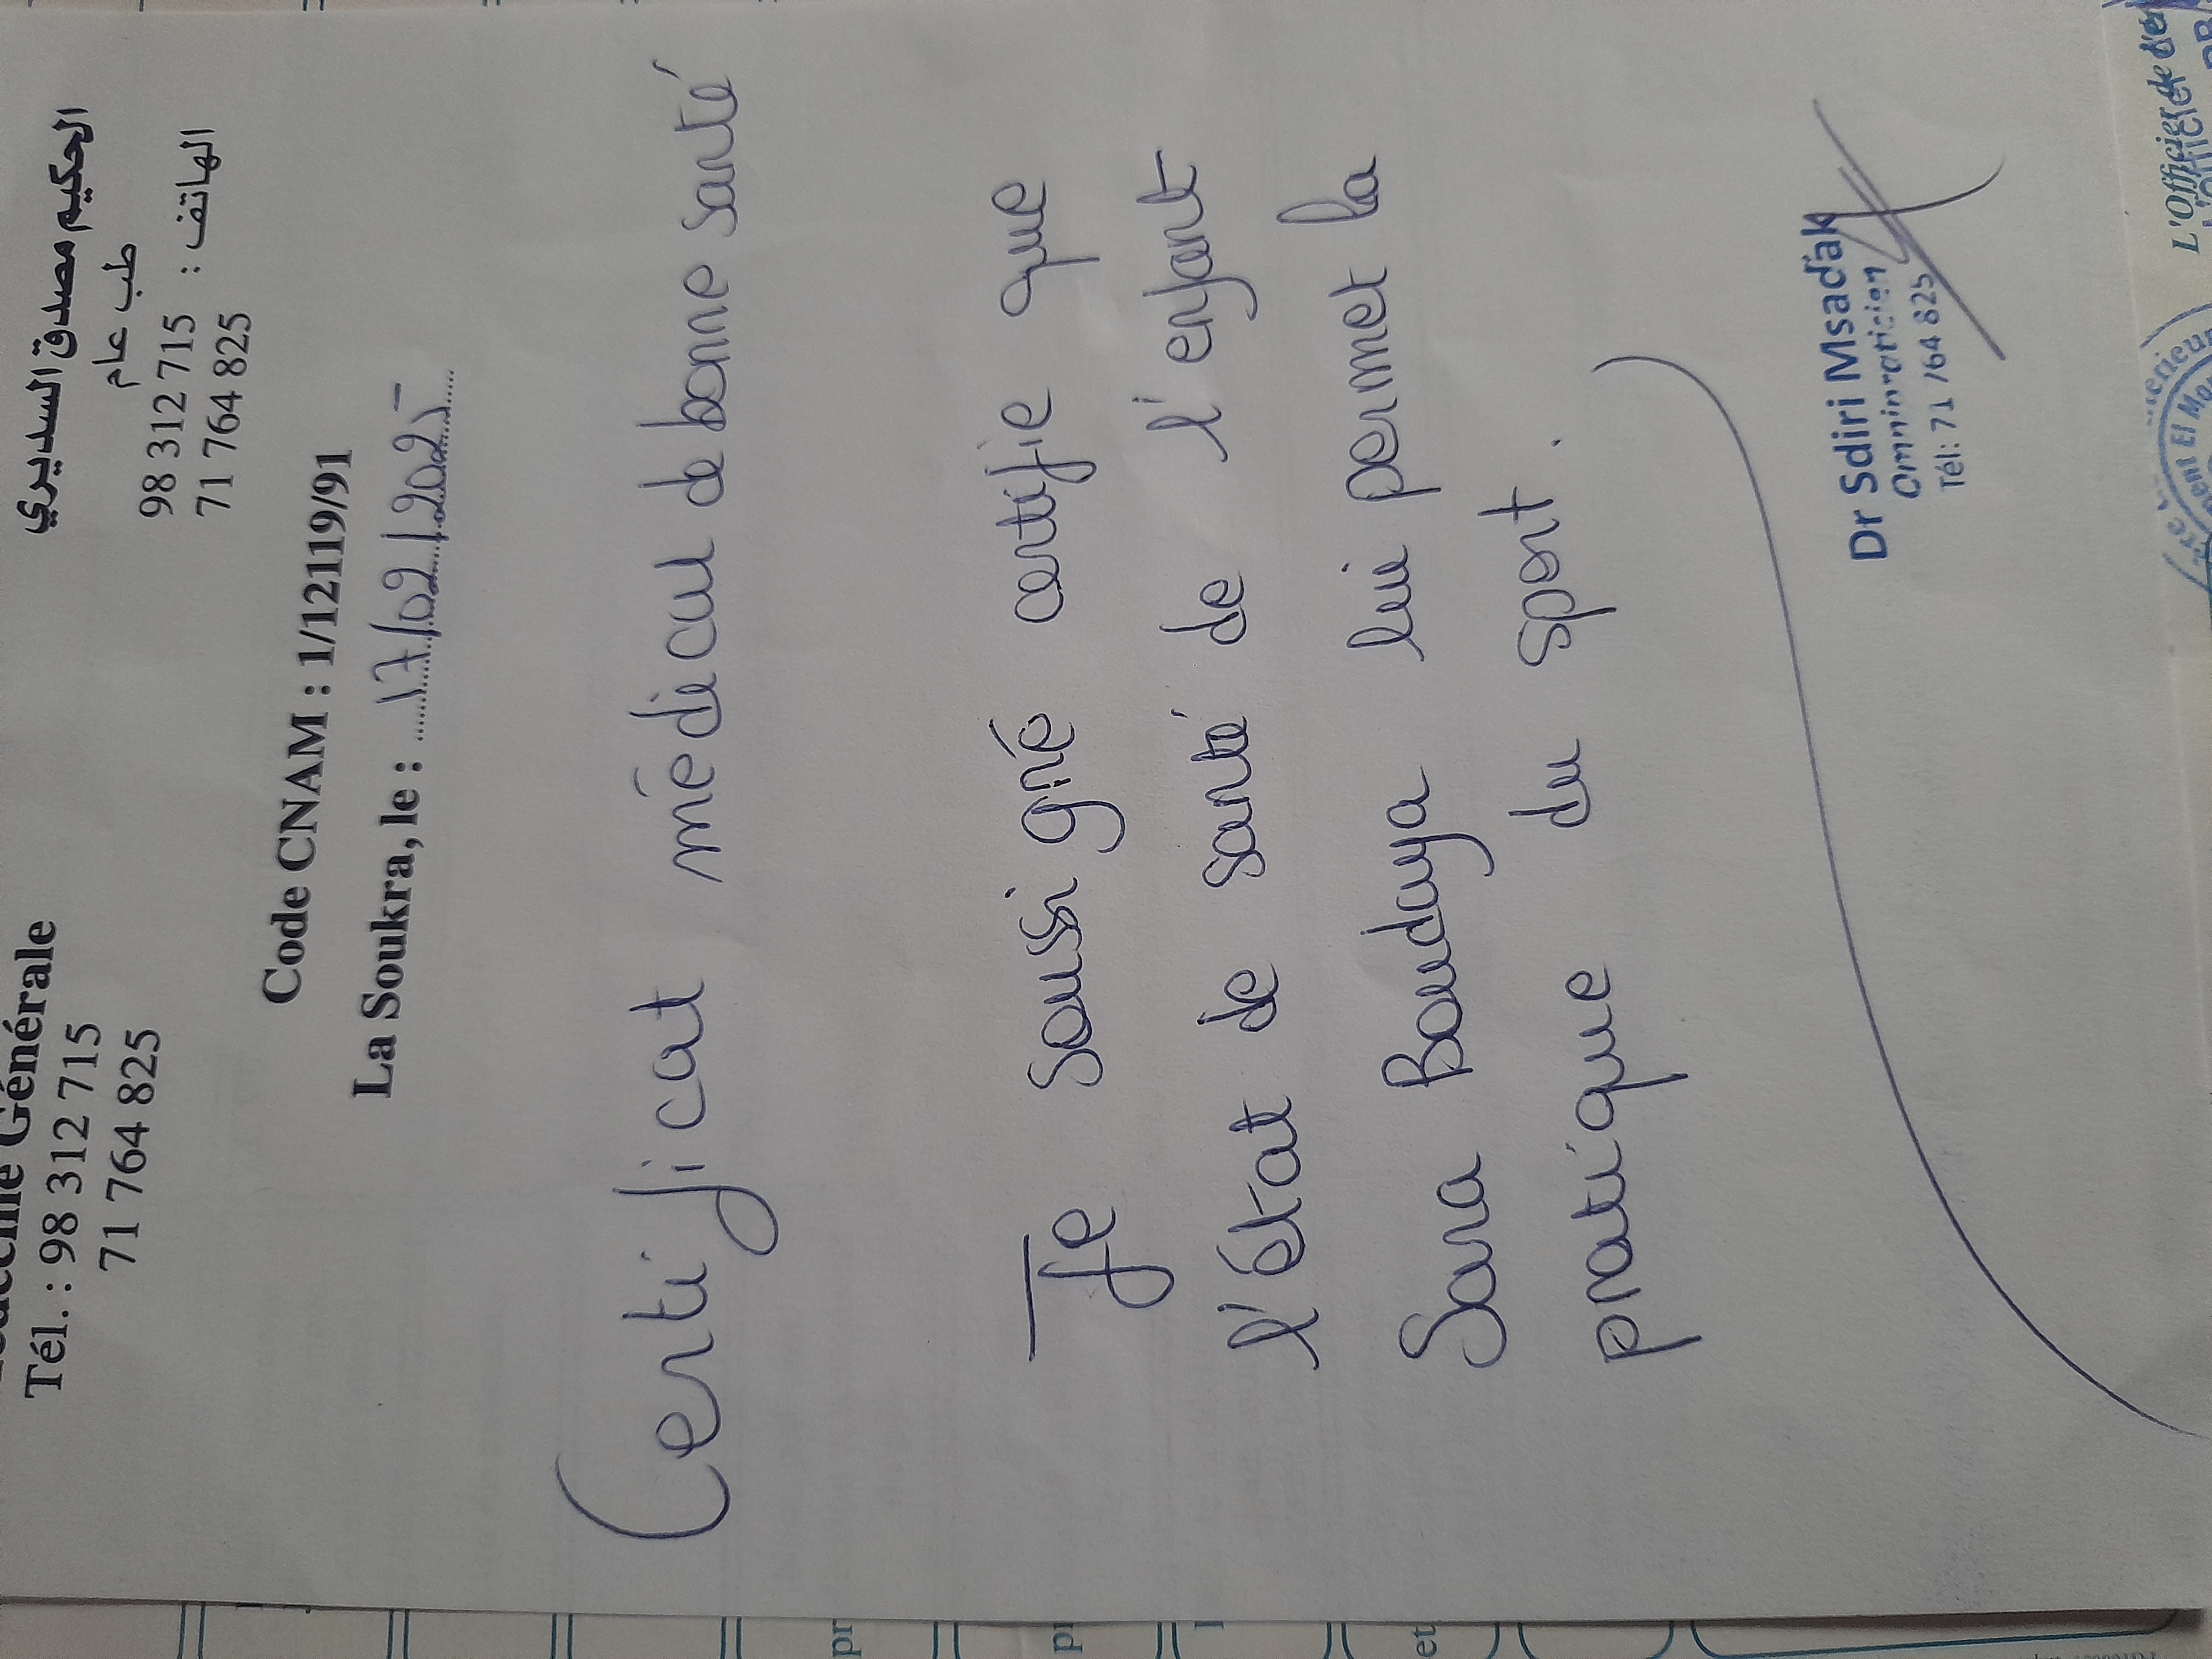 الحكيم مصدق السديري
طب عام
98 312 715 : الهاتف
71 764 825
Générale
Tél. : 98 312 715
71 764 825
Code CNAM : 1/12119/91
La Soukra, le : 17/02/2025
Certificat médical de bonne santé
Je soussigné certifie que
l'état de santé de l'enfant
Sana Boudaya lui permet la
pratique du sport.
Dr Sdiri Msaďak
Omnipraticien
Tél: 71 764 825
L'Officier de
et